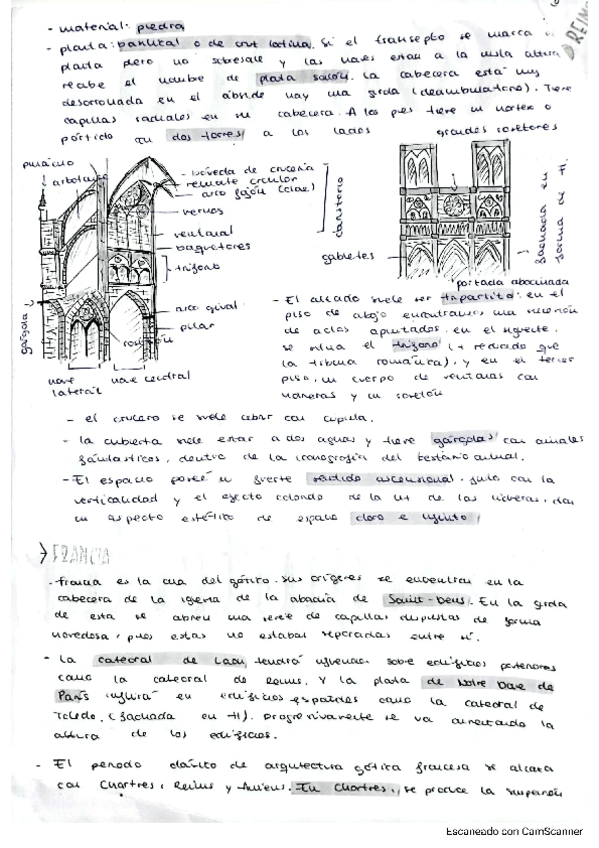 - material: piedra
- planta: basilical o de cruz latina. Si el transepto se marca en
planta pero no sobresale y las naves estan a la misma altura
recibe el nombre de planta salón. La cabecera está muy
desarrollada en el ábside hay una girola (deambulatorio). Tiene
capillas radiales en su cabecera. A los pies tiene un nartex o
pórtico con dos torres a los lados
REINO
grandes rosetones
pináculo
arbotante
- bóveda de crucería
- remate circular
- arco fajón (clave)
- nervios
- ventanal
- baquetones
- triforio
claristorio
- arco ojival
- pilar
gárgola
nave lateral
nave central
gabletes
fachada en forma de H.
portada abocinada
- El alzado suele ser tripartito: en el
piso de abajo encontramos una sucesión
de arcos apuntados, en el siguiente,
se situa el triforio (+ reducido que
la tribuna románica), y en el tercer
piso, un cuerpo de ventanas con
vidrieras y un rosetón
- el crucero se suele cubrir con cúpula.
- la cubierta suele estar a dos aguas y tiene gárgolas con animales
fantásticos, dentro de la iconografía del bestiario animal.
- El espacio posee un fuerte sentido ascensional. Junto con la
verticalidad y el efecto de la luz de las vidrieras, dan
un aspecto estético de espacio claro e
→ FRANCIA
- Francia es la cuna del gótico. Sus orígenes se encuentran en la
cabecera de la iglesia de la abadía de Saint-Denis. En la girola
de esta se abren una serie de capillas dispuestas de forma
novedosa, pues estas no estaban separadas entre sí.
- La catedral de Laon, tendrá influencia sobre edificios posteriores
como la catedral de Reims. Y la planta de Notre Dame de
París influirá en edificios españoles como la catedral de
Toledo. (fachada en H). Progresivamente se va aumentando la
altura de los edificios.
- El periodo clásico de arquitectura gótica francesa se alcanza
con Chartres, Reims y Amiens. En Chartres, se produce la supresión
Escaneado con CamScanner